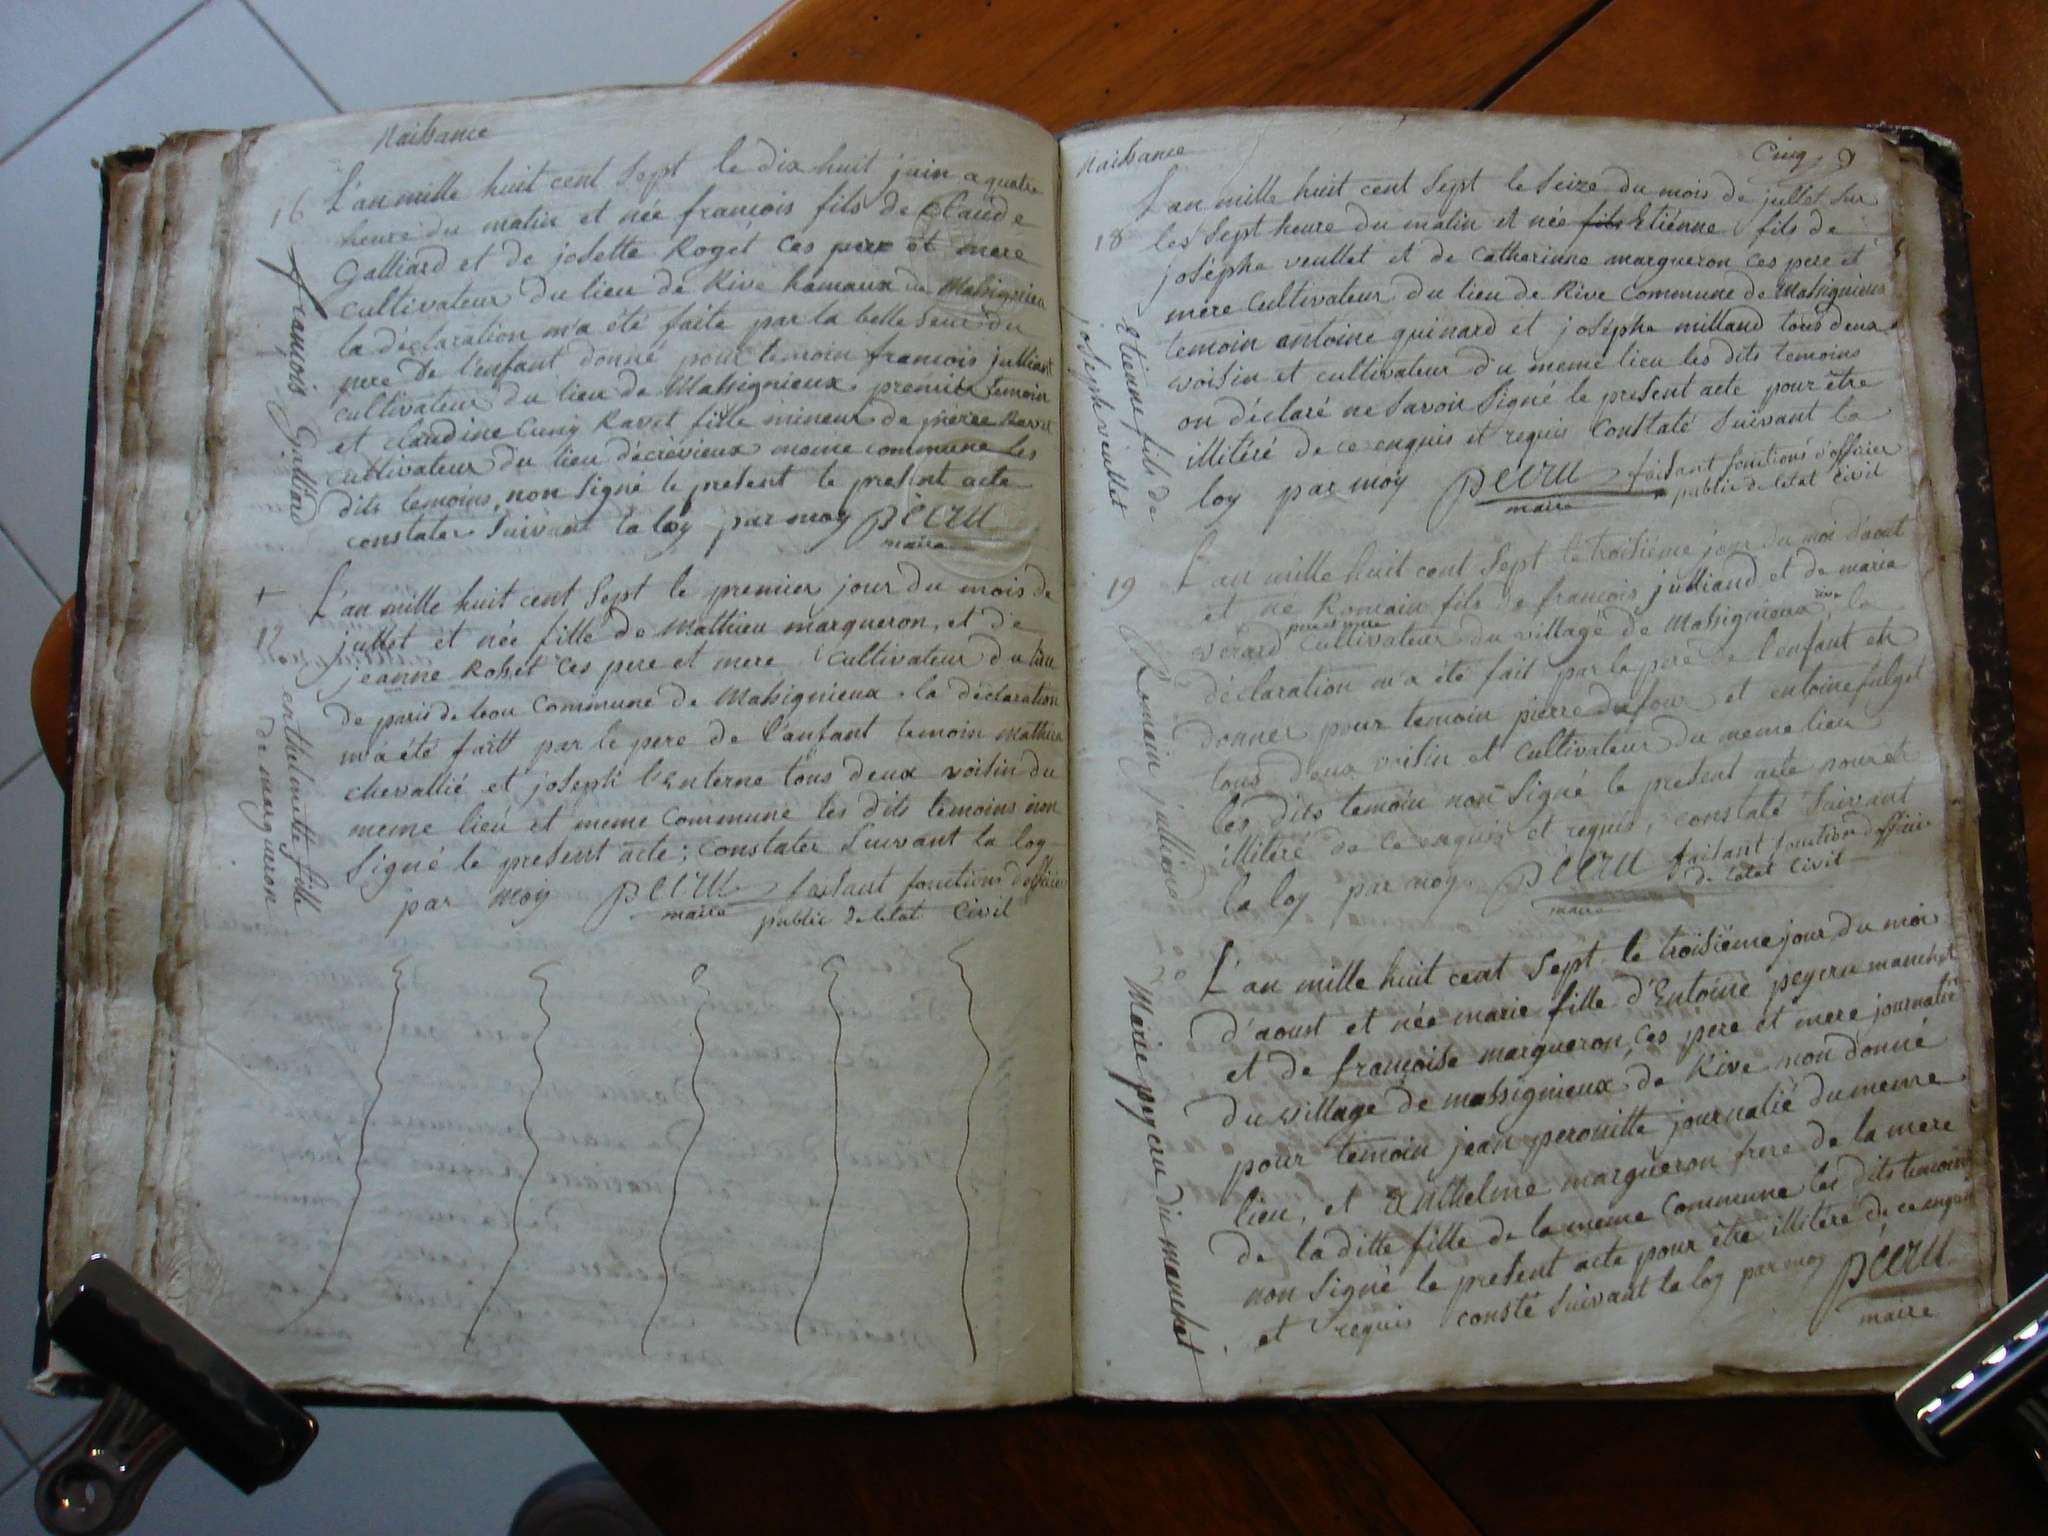 Naissance
16
L'an mille huit cent Sept le dix huit juin a quatre
heure du matin et née francois fils de Claude
Galliard et de josette Roget Ces pere et mere
cultivateur du lieu de Rive hamaux de Massignieu
la déclaration m'a été faite par la belle Seur du
pere de l'enfant donné pour temoin francois julliard
cultivateur du lieu de Massignieux premier temoin
et claudine Cuny Ravet fille mineur de pierre Ravet
cultivateur du lieu décrévieux meme commune les
dits temoins, non Signé le present le present acte
constater Suivant la loy par moy pecru
maire
françois Galliard
+
17
L'an mille huit cent Sept le premier jour du mois de
jullet et née fille de Mathieu margueron, et de
jeanne Roset Ces pere et mere Cultivateur du lieu
de paris de bou Commune de Massignieux la déclaration
m'a été faitt par le pere de l'anfant temoin Mathieu
chevallié et joseph tous deux voisin du
meme lieu et meme Commune les dits temoins non
Signé le present acte; constater Suivant la loy
par moy pecru faisant fonctions d'officier
maire public de letat Civil
anthelmette fille
de margueron
Naissance
Cinq 9
18
L'an mille huit cent Sept le Seize du mois de jullet Sur
les Sept heure du matin et née fils Etiénne fils de
joséphe veullet et de Catherinne margueron Ces pere et
mere Cultivateur du lieu de Rive Commune de Massignieux
temoin antoine quinard et joséphe milland tous deux
voisin et cultivateur du meme lieu les dits temoins
on déclaré ne Savoir Signé le present acte pour être
illitéré de ce enquis et requis Constaté Suivant la
loy par moy pecru faisant fonctions d'officier
maire public de letat Civil
Etienne fils de
joseph veullet
19
L'an mille huit cent Sept le troisiéme jour du moi d'aout
et né Romain fils de francois julliand et de marie
pere et mere rive
verard Cultivateur du village de Massignieux la
déclaration m'a été fait par le pere de l'enfant et
donner pour temoin pierre dufour et entoine fulget
tous deux voisin et Cultivateur du meme lieu
les dits temoin non Signé le present acte pour et
illitéré de Ce enquis et requis, constaté Suivant
la loy par moy pecru faisant fonction d'officier
maire de letat Civil
Romain julliand
20
L'an mille huit cent Sept le troisiéme jour du moi
d'aoust et née marie fille d'Entoine peycru manchet
et de françoise margueron, Ces pere et mere journalier
du village de massignieux de Rive non donné
pour temoin jean perouitte journalié du meme
lieu, et anthelme margueron frere de la mere
de la ditte fille de la meme Commune les dits temoin
non Signé le present acte pour être illitere de ce enquis
et requis consté Suivant la loy par moy pecru
maire
Marie peycru dit manchet